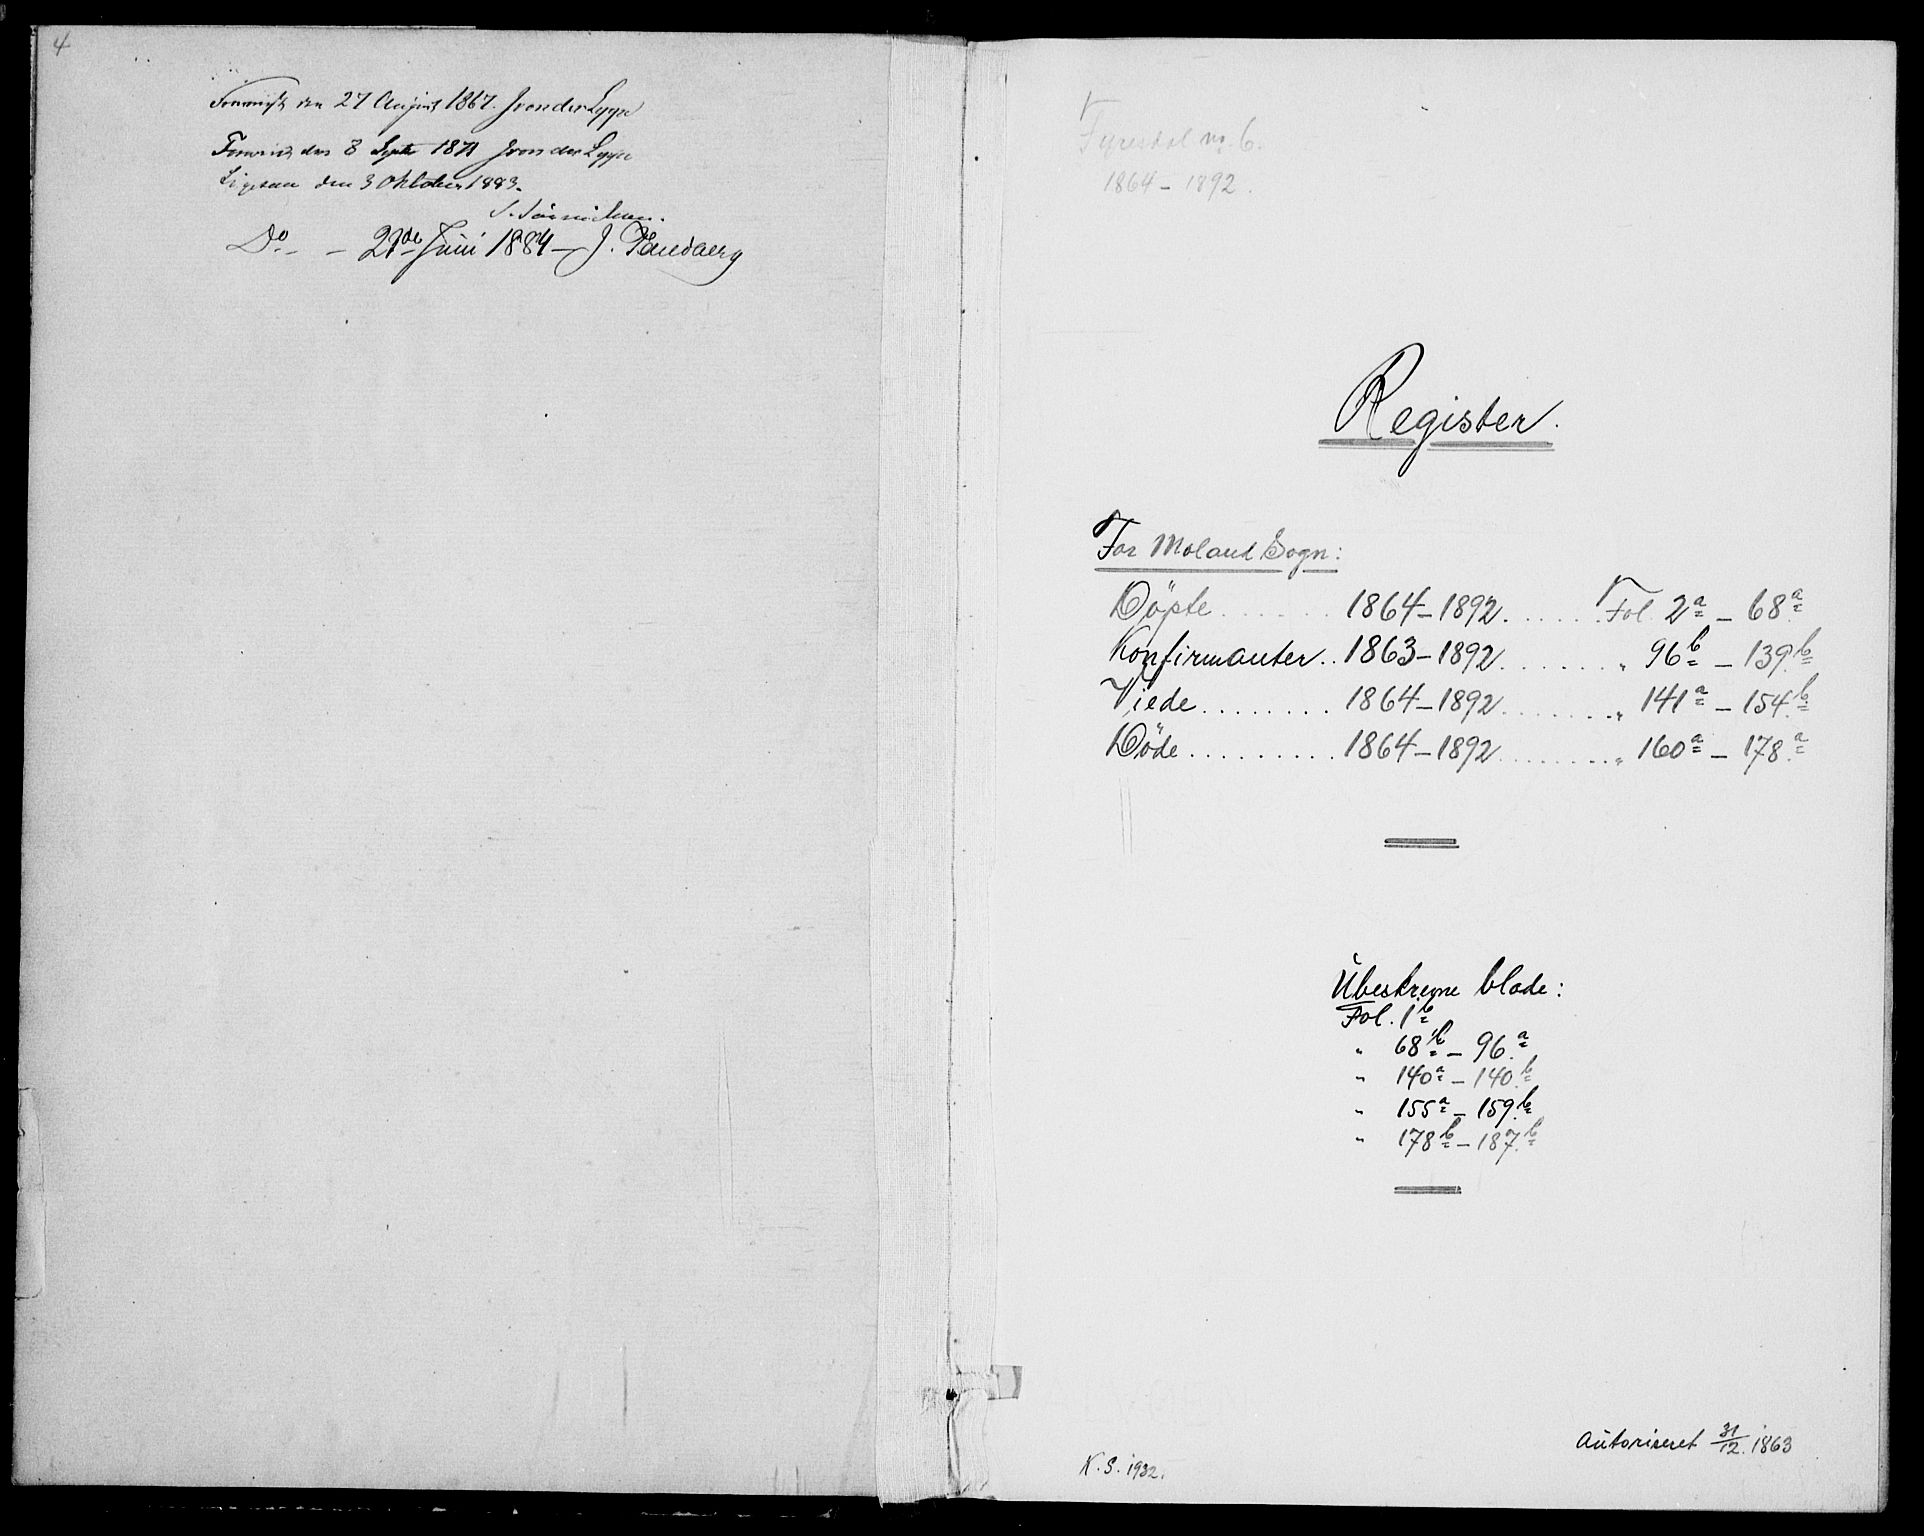 4
den 27 August 1867. J von der Lippe
den 8 Septr 1871 J von der Lippe
Ligesaa den 3 Oktober 1883.
Do. - - 21de Juni 1884 - J.
Fyresdal nr. 6.
1864 - 1892.
Register.
For Moland Sogn:
Döpte ...... 1864-1892 ...... Fol. 2a - 68a
Konfirmanter .. 1863-1892 ....... " 96b - 139b
Viede ........ 1864-1892 ........ " 141a - 154b
Döde .......... 1864-1892 ........ " 160a - 178a
Ubeskrevne blade:
Fol. 1b
" 68b - 96a
" 140a - 140b
" 155a - 159b
" 178b - 187b
Autoriseret 31/12. 1863
K. S. 1932.